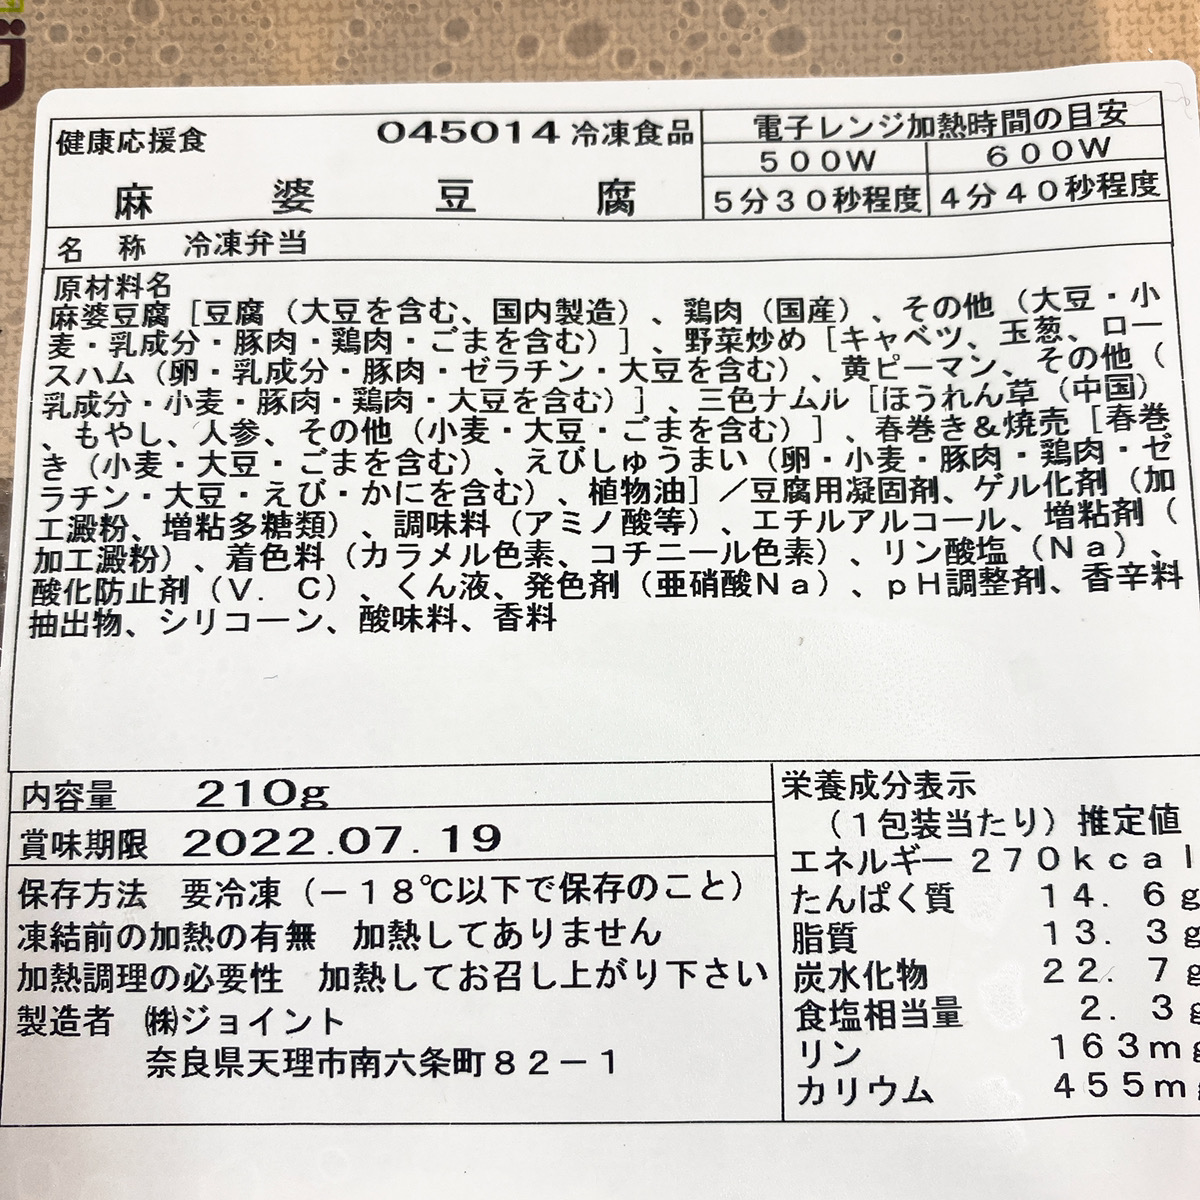 健康応援食 045014 冷凍食品
麻婆豆腐
電子レンジ加熱時間の目安
500W 600W
5分30秒程度 4分40秒程度
名称 冷凍弁当
原材料名
麻婆豆腐［豆腐（大豆を含む、国内製造）、鶏肉（国産）、その他（大豆・小
麦・乳成分・豚肉・鶏肉・ごまを含む）］、野菜炒め［キャベツ、玉葱、ロー
スハム（卵・乳成分・豚肉・ゼラチン・大豆を含む）、黄ピーマン、その他（
乳成分・小麦・豚肉・鶏肉・大豆を含む）］、三色ナムル［ほうれん草（中国）
、もやし、人参、その他（小麦・大豆・ごまを含む）］、春巻き＆焼売［春巻
き（小麦・大豆・ごまを含む）、えびしゅうまい（卵・小麦・豚肉・鶏肉・ゼ
ラチン・大豆・えび・かにを含む）、植物油］／豆腐用凝固剤、ゲル化剤（加
工澱粉、増粘多糖類）、調味料（アミノ酸等）、エチルアルコール、増粘剤（
加工澱粉）、着色料（カラメル色素、コチニール色素）、リン酸塩（Na）、
酸化防止剤（V．C）、くん液、発色剤（亜硝酸Na）、pH調整剤、香辛料
抽出物、シリコーン、酸味料、香料
内容量 210g
賞味期限 2022.07.19
保存方法 要冷凍（－18℃以下で保存のこと）
凍結前の加熱の有無 加熱してありません
加熱調理の必要性 加熱してお召し上がり下さい
製造者 ㈱ジョイント
奈良県天理市南六条町82－1
栄養成分表示
（1包装当たり）推定値
エネルギー 270kcal
たんぱく質 14.6g
脂質 13.3g
炭水化物 22.7g
食塩相当量 2.3g
リン 163mg
カリウム 455mg